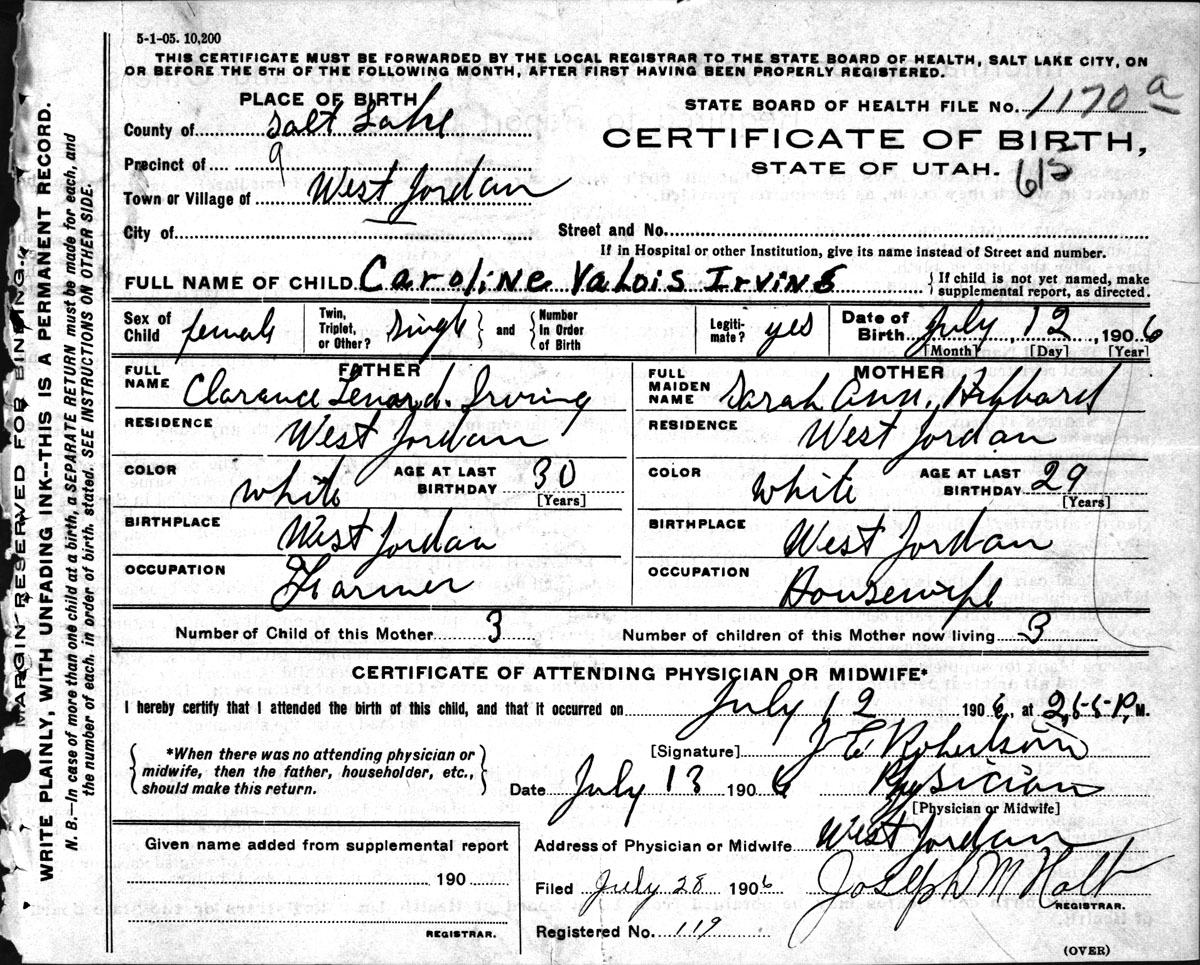 5-1-05. 10,200
THIS CERTIFICATE MUST BE FORWARDED BY THE LOCAL REGISTRAR TO THE STATE BOARD OF HEALTH, SALT LAKE CITY, ON
OR BEFORE THE 5TH OF THE FOLLOWING MONTH, AFTER FIRST HAVING BEEN PROPERLY REGISTERED.
MARGIN RESERVED FOR BINDING.
WRITE PLAINLY, WITH UNFADING INK--THIS IS A PERMANENT RECORD.
N. B.—In case of more than one child at a birth, a SEPARATE RETURN must be made for each, and
the number of each, in order of birth, stated. SEE INSTRUCTIONS ON OTHER SIDE.
PLACE OF BIRTH
County of Salt Lake
Precinct of 9
Town or Village of West Jordan
City of
STATE BOARD OF HEALTH FILE No. 1170 a
CERTIFICATE OF BIRTH,
STATE OF UTAH. 615
Street and No.
If in Hospital or other Institution, give its name instead of Street and number.
FULL NAME OF CHILD Caroline Valois Irving
If child is not yet named, make
supplemental report, as directed.
Sex of Child female
Twin, Triplet, or Other? single and Number In Order of Birth
Legitimate? yes
Date of Birth July, 12, 1906
[Month] [Day] [Year]
FATHER
FULL NAME Clarence Lenard. Irving
RESIDENCE West Jordan
COLOR white AGE AT LAST BIRTHDAY 30
[Years]
BIRTHPLACE West Jordan
OCCUPATION Farmer
MOTHER
FULL MAIDEN NAME Sarah Ann, Hibbard
RESIDENCE West Jordan
COLOR white AGE AT LAST BIRTHDAY 29
[Years]
BIRTHPLACE West Jordan
OCCUPATION Housewife
Number of Child of this Mother 3 Number of children of this Mother now living 3
CERTIFICATE OF ATTENDING PHYSICIAN OR MIDWIFE*
I hereby certify that I attended the birth of this child, and that it occurred on July 12 1906, at 2,55 P, M.
*When there was no attending physician or
midwife, then the father, householder, etc.,
should make this return.
[Signature] J E Robertson
Date July 13 1906 Physician
[Physician or Midwife]
Address of Physician or Midwife West Jordan
Given name added from supplemental report
190
REGISTRAR.
Filed July 28 1906 Joseph M Holt
REGISTRAR.
Registered No. 119
(OVER)